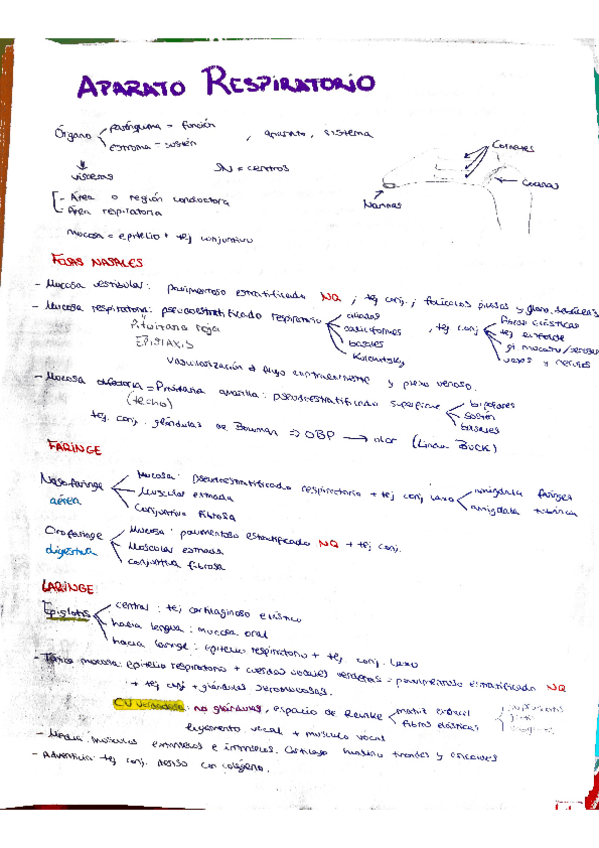 APARATO RESPIRATORIO
Órgano parénquima = función
estroma - sostén , aparato, sistema
vísceras SN = centros
Cornetes
Coanas
Narinas
- Área o región conductora
- Área respiratoria
mucosa = epitelio + tej conjuntivo
FOSAS NASALES
- Mucosa vestibular: pavimentoso estratificado NQ ; tej conj. ; folículos pilosos y gland. sebáceas
- Mucosa respiratoria: pseudoestratificado respiratorio ciliadas
caliciformes
basales
Kulchitsky
, tej conj fibras elásticas
tej linfoide
gl mucosas/serosas
vasos y nervios
Pituitaria roja
EPISTAXIS
Vascularización de flujo contracorriente y plexo venoso.
- Mucosa olfatoria = Pituitaria amarilla: pseudoestratificado superficie bipolares
sostén
basales
(techo)
tej. conj. glándulas de Bowman => OBP → olor (Linda BUCK)
FARINGE
Nasofaringe
aérea
Mucosa: pseudoestratificado respiratorio + tej conj laxo amígdala faríngea
amígdala tubárica
Muscular estriada
Conjuntiva fibrosa
Orofaringe
digestiva
Mucosa: pavimentoso estratificado NQ + tej conj.
Muscular estriada
conjuntiva fibrosa
LARINGE
Epiglotis central: tej cartilaginoso elástico
hacia lengua: mucosa oral
hacia laringe: epitelio respiratorio + tej conj. laxo
mucosa: epitelio respiratorio + cuerdas vocales verdaderas = pavimentoso estratificado NQ
+ tej conj + glándulas seromucosas.
CV verdaderas: no glándulas, espacio de Reinke matriz extracel
fibras elásticas
ligamento vocal + músculo vocal
- Media: músculos extrínsecos e intrínsecos. Cartílago hialino tiroides y cricoides
- Adventicia tej conj. denso con colágeno.